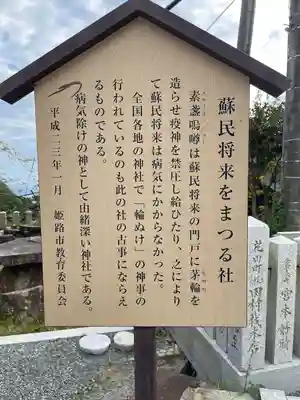 蘇民将来をまつる社
素盞嗚尊は蘇民将来の門戸に茅輪を
造らせ疫神を禁圧し給ひたり、之により
て蘇民将来は病気にかからなかった。
全国各地の神社で「輪ぬけ」の神事の
行われているのも此の社の古事にならえ
るものである。
病気除けの神として由緒深い神社である。
平成一三年一月 姫路市教育委員会
宮本